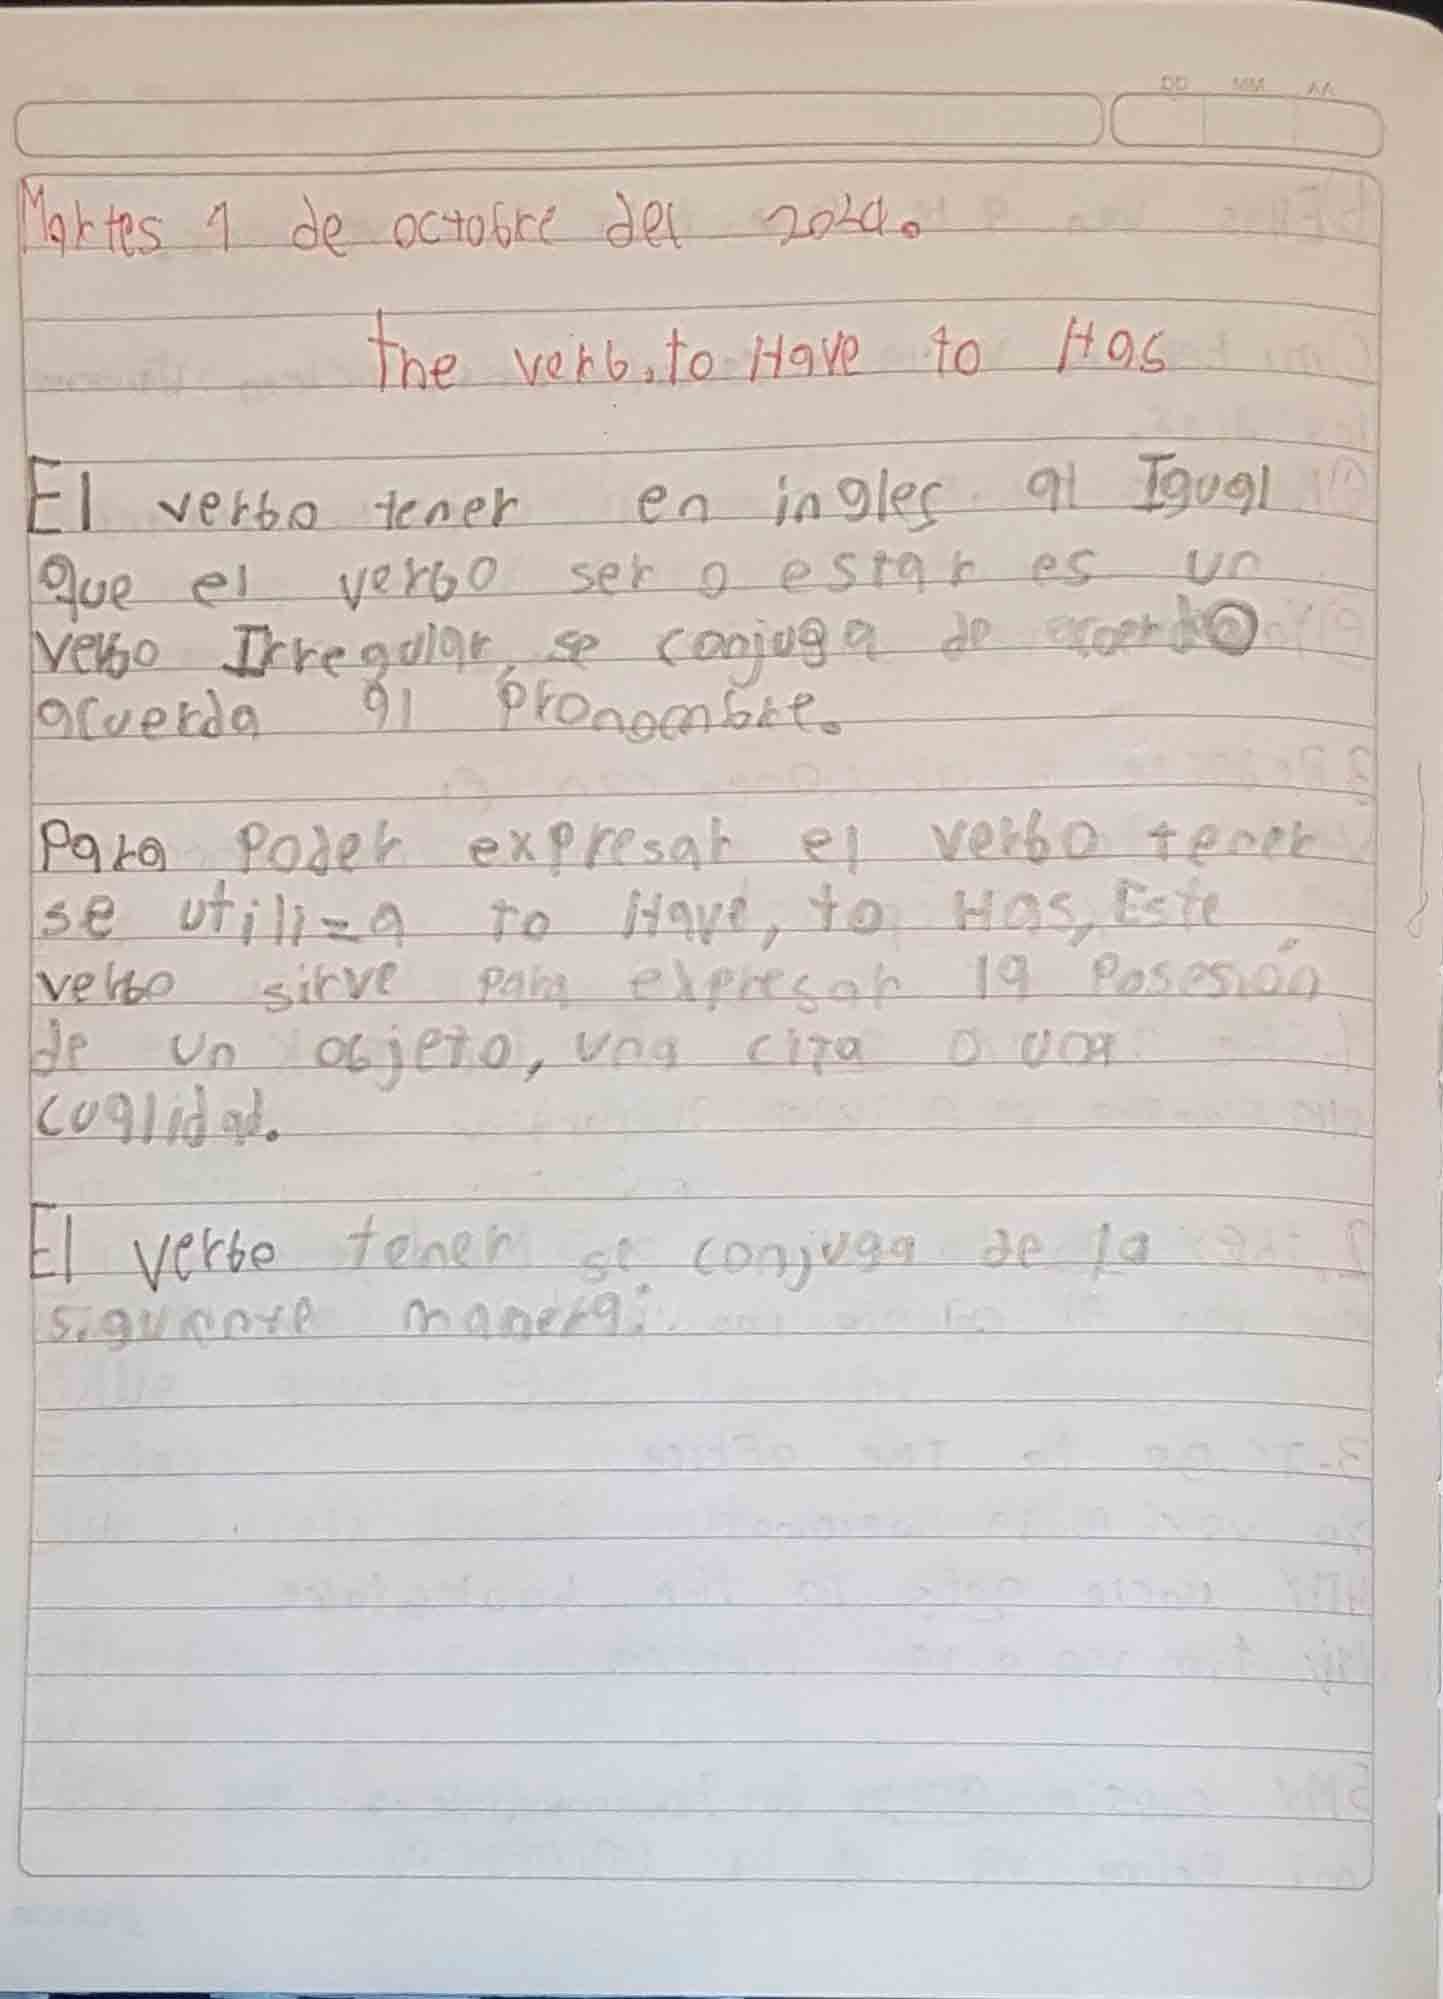 DD MM AA
Martes 1 de octobre del 2024.
the verb, to Have to Has
El verbo tener en ingles al Igual
que el verbo ser o estar es un
verbo Irregular, se conjuga de
acuerda al pronombre.
Para Poder expresar el verbo tener
se utiliza to Have, to Has, Este
verbo sirve para expresar la Posesión
de un objeto, una cita o una
cualidad.
El verbo tener se conjuga de la
siguente manera: